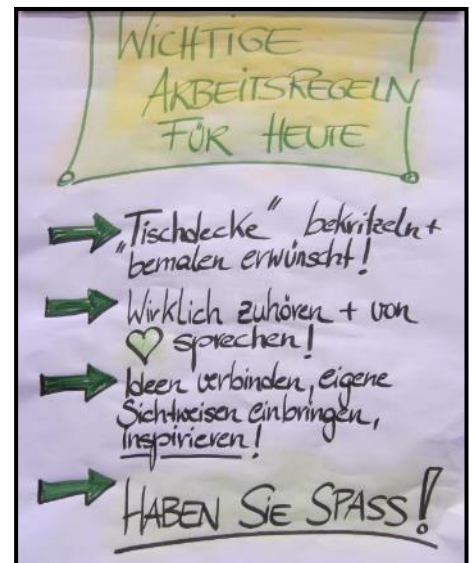 WICHTIGE
ARBEITSREGELN
FÜR HEUTE
„Tischdecke" bekritzeln +
bemalen erwünscht!
Wirklich zuhören + von
♡ sprechen!
Ideen verbinden, eigene
Sichtweisen einbringen,
inspirieren!
HABEN SIE SPASS!